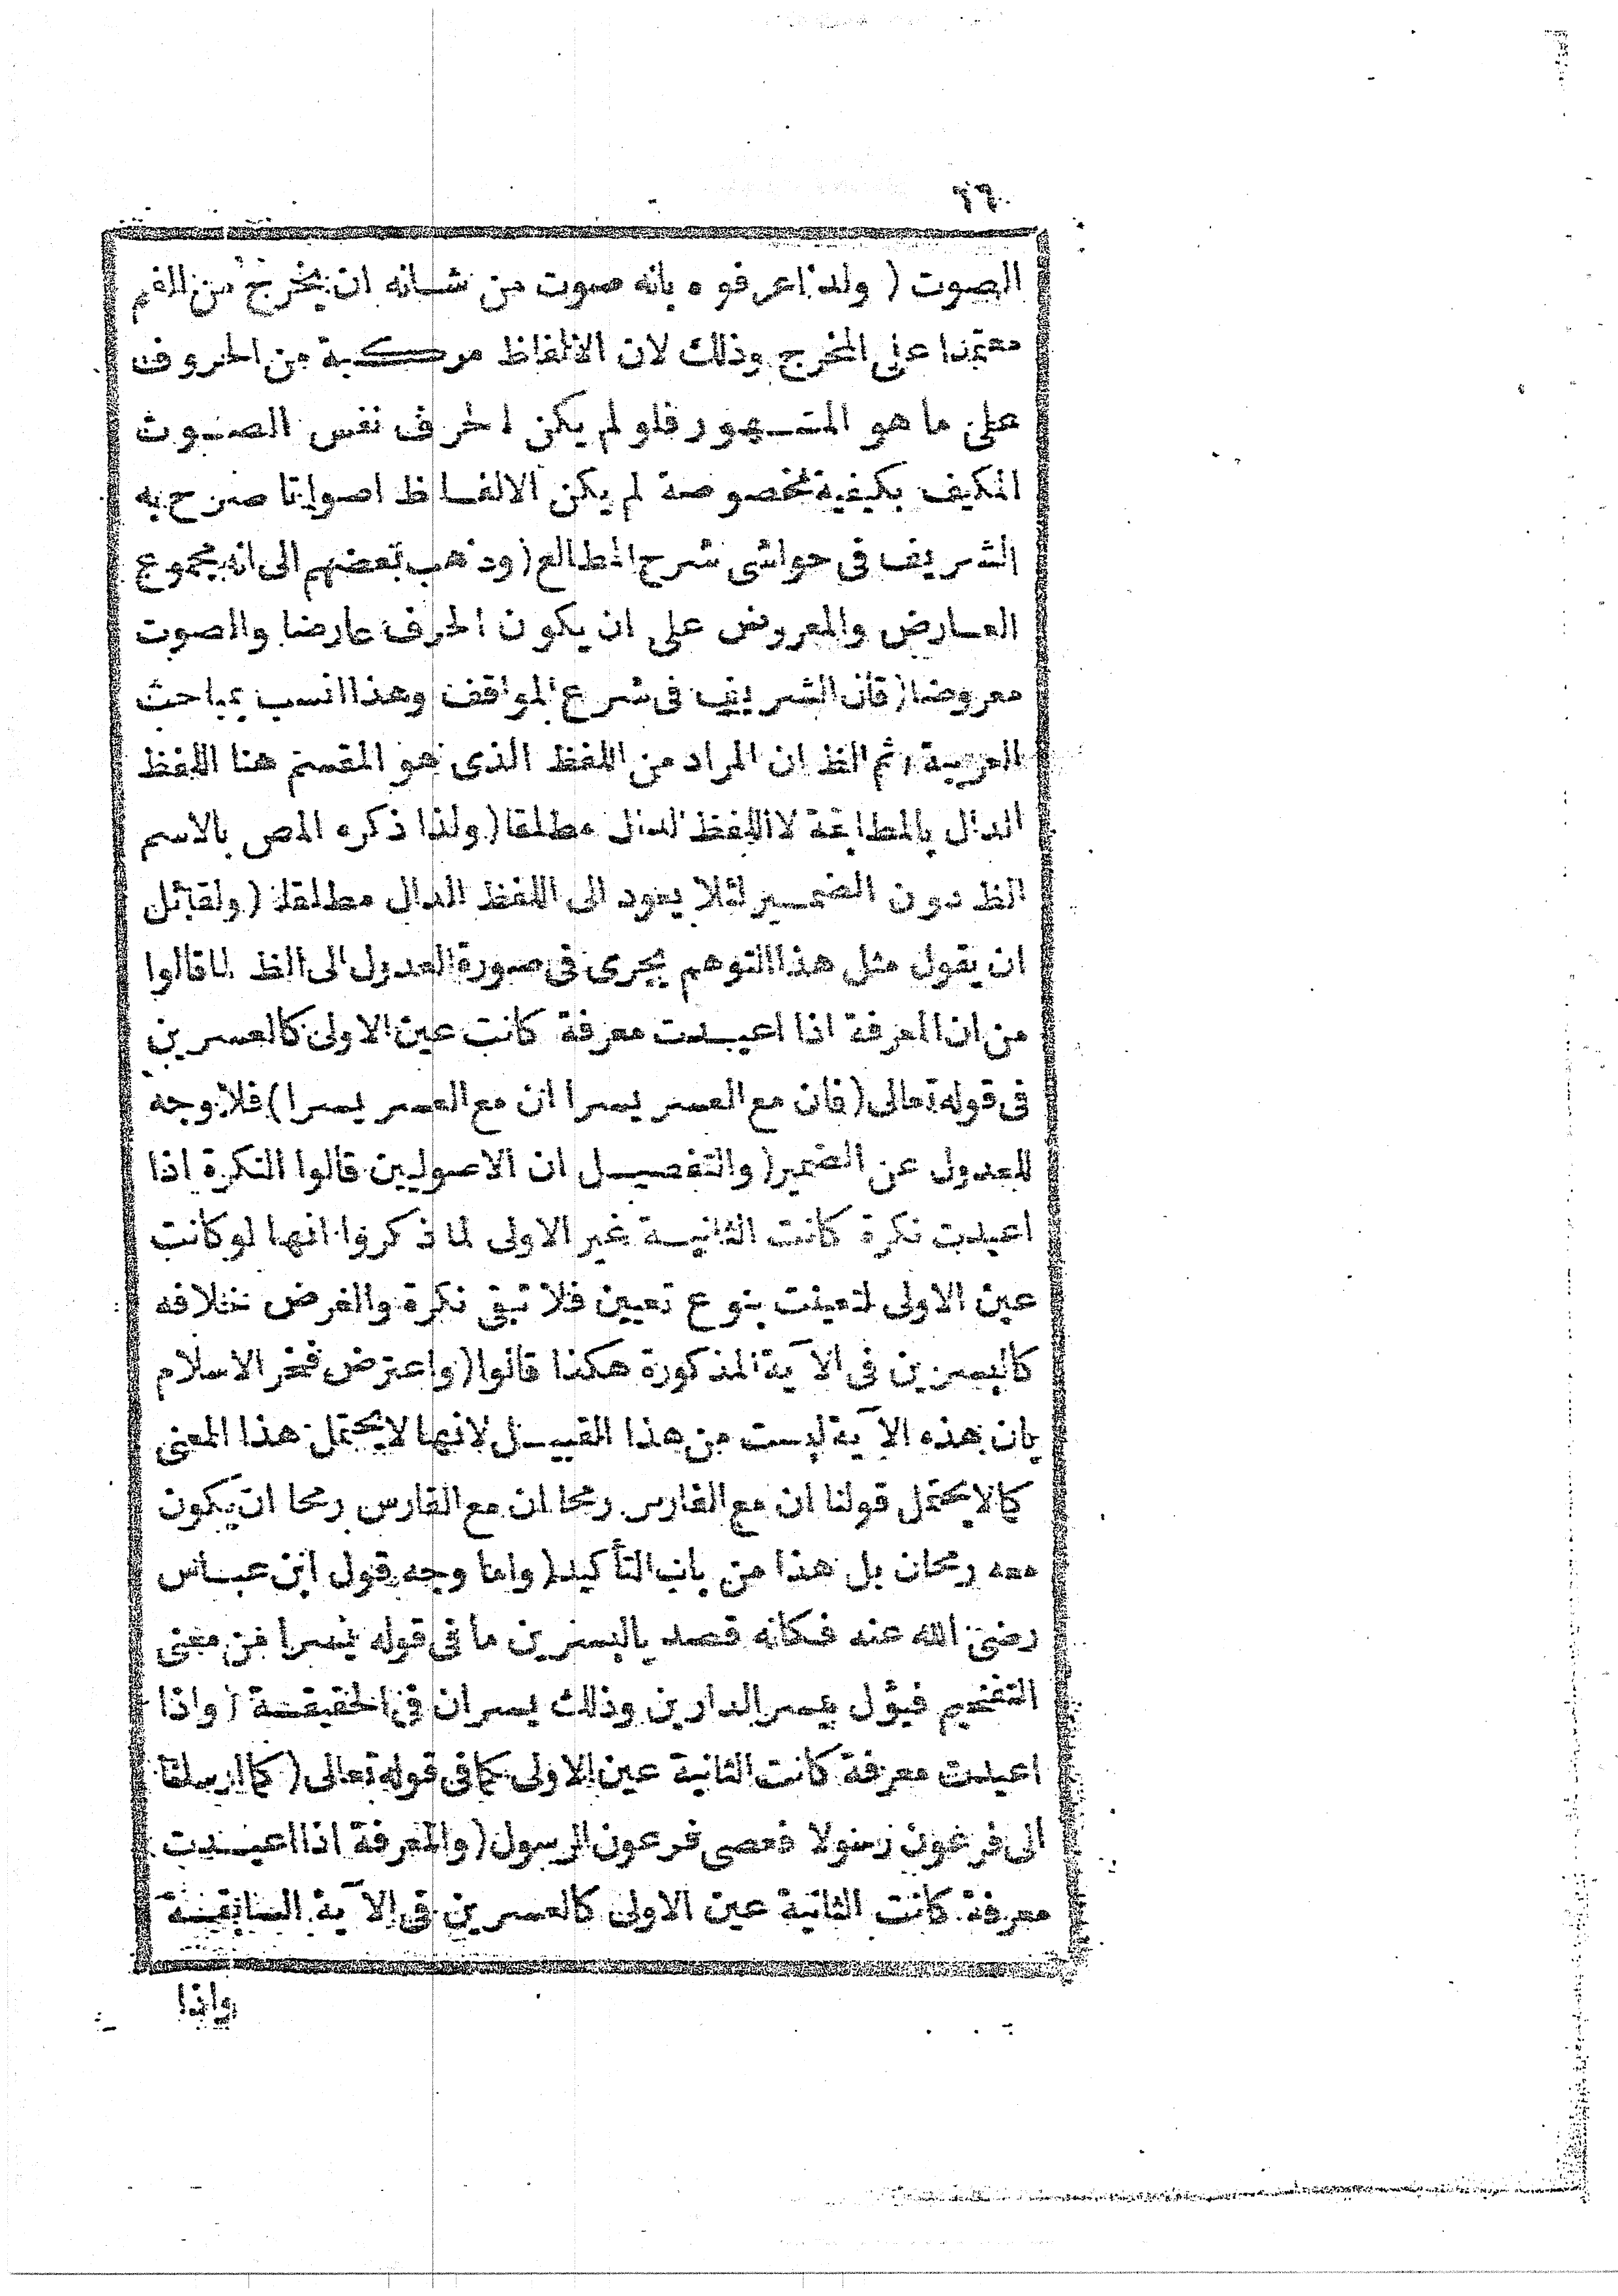 ٢٦
الصوت ( ولذا عرفوه بانه صوت من شانه ان يخرج من الفم
معتمدا على المخرج وذلك لان الالفاظ مركبة من الحروف
على ما هو المشهور فلو لم يكن الحرف نفس الصوت
المكيف بكيفية مخصوصة لم يكن الالفاظ اصواتا صرح به
الشريف فى حواشى شرح المطالع ( وذهب بعضهم الى انه مجموع
العارض والمعروض على ان يكون الحرف عارضا والصوت
معروضا ( قال الشريف فى شرح المواقف وهذا انسب بمباحث
العربية ثم الظ ان المراد من اللفظ الذى هو المقسم هنا اللفظ
الدال بالمطابقة لا اللفظ الدال مطلقا ( ولذا ذكره المص بالاسم
الظ دون الضمير لئلا يعود الى اللفظ الدال مطلقا ( ولقائل
ان يقول مثل هذا التوهم يجرى فى صورة العدول الى الظ لما قالوا
من ان المعرفة اذا اعيدت معرفة كانت عين الاولى كالعسرين
فى قوله تعالى ( فان مع العسر يسرا ان مع العسر يسرا ) فلا وجه
للعدول عن الضمير ( والتفصيل ان الاصوليين قالوا النكرة اذا
اعيدت نكرة كانت الثانية غير الاولى لما ذكروا انها لو كانت
عين الاولى لتعينت بنوع تعيين فلا تبقى نكرة والفرض خلافه
كاليسرين فى الآية المذكورة هكذا قالوا ( واعترض فخر الاسلام
بان هذه الآية ليست من هذا القبيل لانها لا يحتمل هذا المعنى
كما لا يحتمل قولنا ان مع الفارس رمحا ان مع الفارس رمحا ان يكون
معه رمحان بل هذا من باب التأكيد ( واما وجه قول ابن عباس
رضى الله عنه فكانه قصد باليسرين ما فى قوله يسرا من معنى
التفخيم فيؤل بيسر الدارين وذلك يسران فى الحقيقة ( واذا
اعيدت معرفة كانت الثانية عين الاولى كما فى قوله تعالى ( كما ارسلنا
الى فرعون رسولا فعصى فرعون الرسول ( والمعرفة اذا اعيدت
معرفة كانت الثانية عين الاولى كالعسرين فى الآية السابقة
واذا